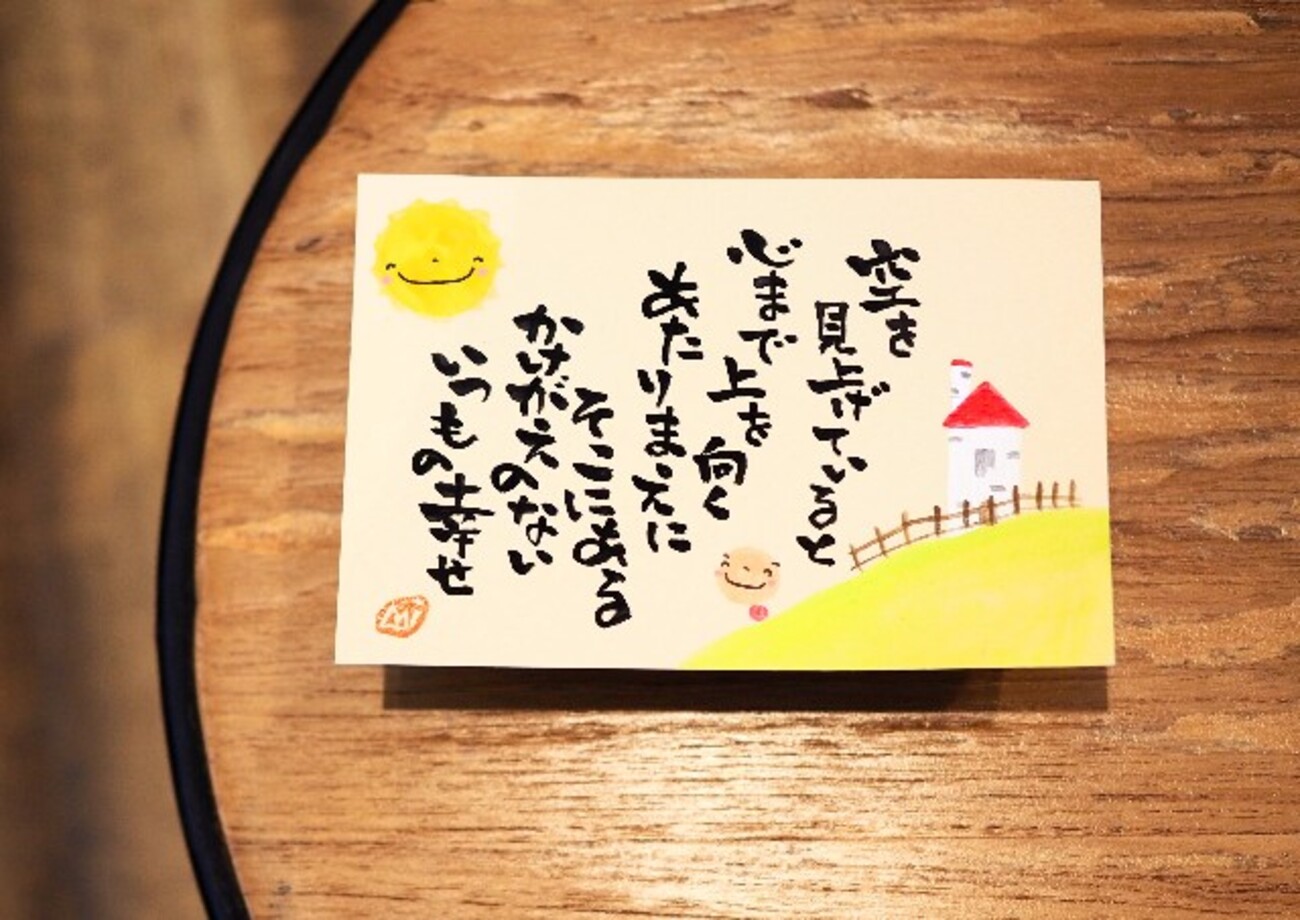 空を
見上げていると
心まで
上を
向く
あたりまえに
そこにある
かけがえのない
いつもの幸せ